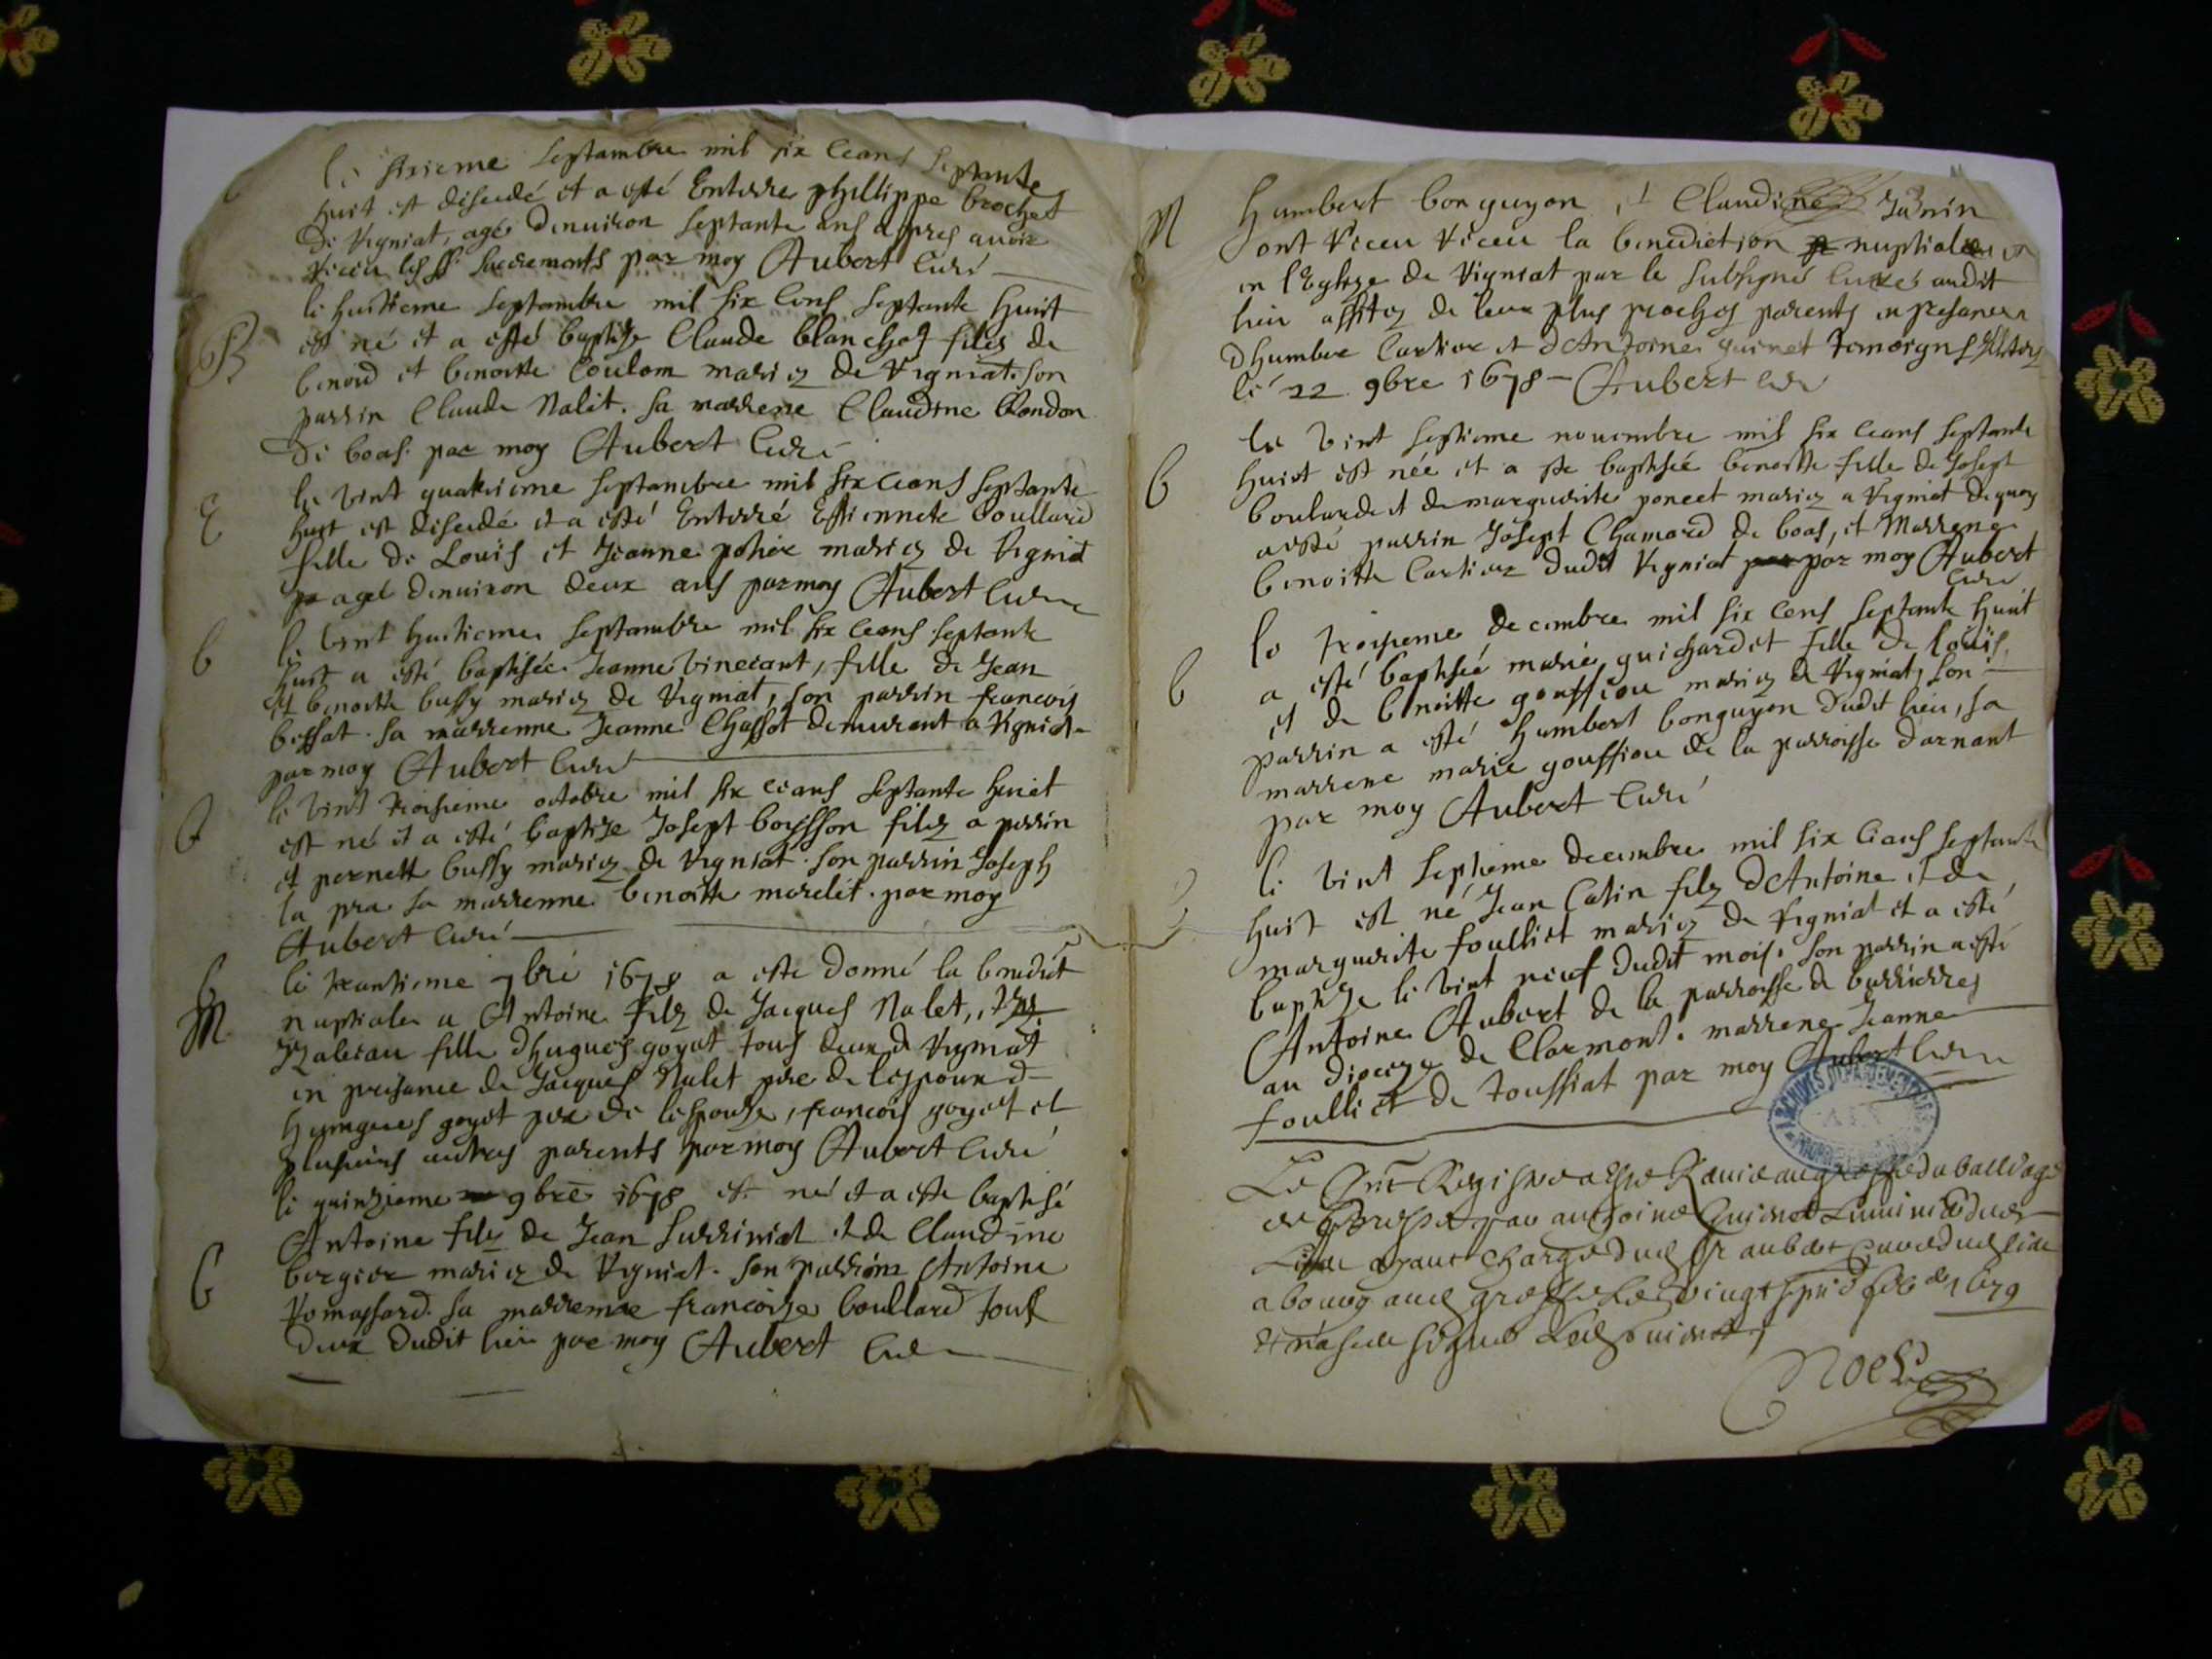 le sixieme septambre mil six ceans septante
huit est discedé et a esté Enterre phillippe brochet
de Vigniat, agé denuiron septante ans apres auoir
receu les ss. sacrements par moy Aubert curé
B
le huittieme septambre mil six cens septante huit
est né et a esté baptise Claude blanchot filz de
benoid et benoitte Coulom mariez de Vigniat. son
parrin Claude Nalit. sa marrene Claudine Bondon
de boas. par moy Aubert Curé
E
le vint quatrieme septambre mil six ceans septante
huit est discedé et a esté Enterré Estiennete boullard
fille de Louis et Jeanne pohier mariez de Vigniat
agé denuiron deux ans par moy Aubert Curé
b
le vint huitieme septambre mil six ceans septante
huit a esté baptisée Jeanne Vincant, fille de Jean
et benoitte bussy mariez de Vigniat, son parrin francois
bessat. sa marrenne Jeanne Chassot demurant a Vigniat
par moy Aubert Curé
b
le vint troisieme octobre mil six ceans septante huict
est né et a esté baptize Josept boisson filz a perrin
et pernette bussy mariez de Vigniat. son parrin Joseph
la pra sa marrenne benoitte morelit. par moy
Aubert Curé
b
M
le trantieme 7bre 1678 a este donné la benedict
nuptiale a Antoine filz de Jacques Nalet, et
Yzabeau fille dhugues goyat tous deux de Vigniat
in presance de Jacques Nalet pere de lespoux
hungues goyet pere de lespouze, francois goyet et
plusieurs autres parents par moy Aubert Curé
b
le quinzieme 9bre 1678 est né et a este baptisé
Antoine filz de Jean surriniat et de Claudine
bergier mariez de Vigniat. son parrin Antoine
Romassard. sa marrenne francoise boullard tous
deux dudit lieu par moy Aubert Curé
M
humbert bonguyon et Claudine Janin
ont receu receu la benediction nuptiale
en leglize de Vigniat par le subsigné curé audit
lieu assitez de leur plus proches parents en presance
dhumber Cartier et dAntoine guinet temoigns
le 22 9bre 1678 — Aubert Curé
b
le vint septieme nouembre mil six ceans septante
huict est née et a ste baptisée benoitte fille de Josept
boulard et de marguerite poncet mariez a Vigniat
a esté parrin Josept Chamard de boas, et Marrene
benoitte Cartier dudit Vigniat par moy Aubert
Curé
b
le troisieme decembre mil six cens septante huit
a esté baptisée marie guichardet fille de louis
et de benoitte gouffiou mariez de Vigniat, son
parrin a esté humbert bonguyon dudit lieu, sa
marrene marie gouffiou de la parroisse darnant
par moy Aubert Curé
le vint septieme decembre mil six ceans septante
huit est né Jean Catin filz dAntoine et de
marguerite foulliet mariez de Vigniat et a esté
baptize le vint neuf dudit mois. son parrin a esté
Antoine Aubert de la parroisse de
au dioceze de Clermont. marrene Jeanne
foulliet de toussiat par moy Aubert Curé
ARCHIVES DEPARTEMENTALES
AIN
Le Registre a este au greffe du bailliage
de par antoine Guinet
ayant charge dud Sr aubert Curé dud lieu
a bourg aud greffe Le vingt 1679
et na sceu signer Led Guinet
Noel